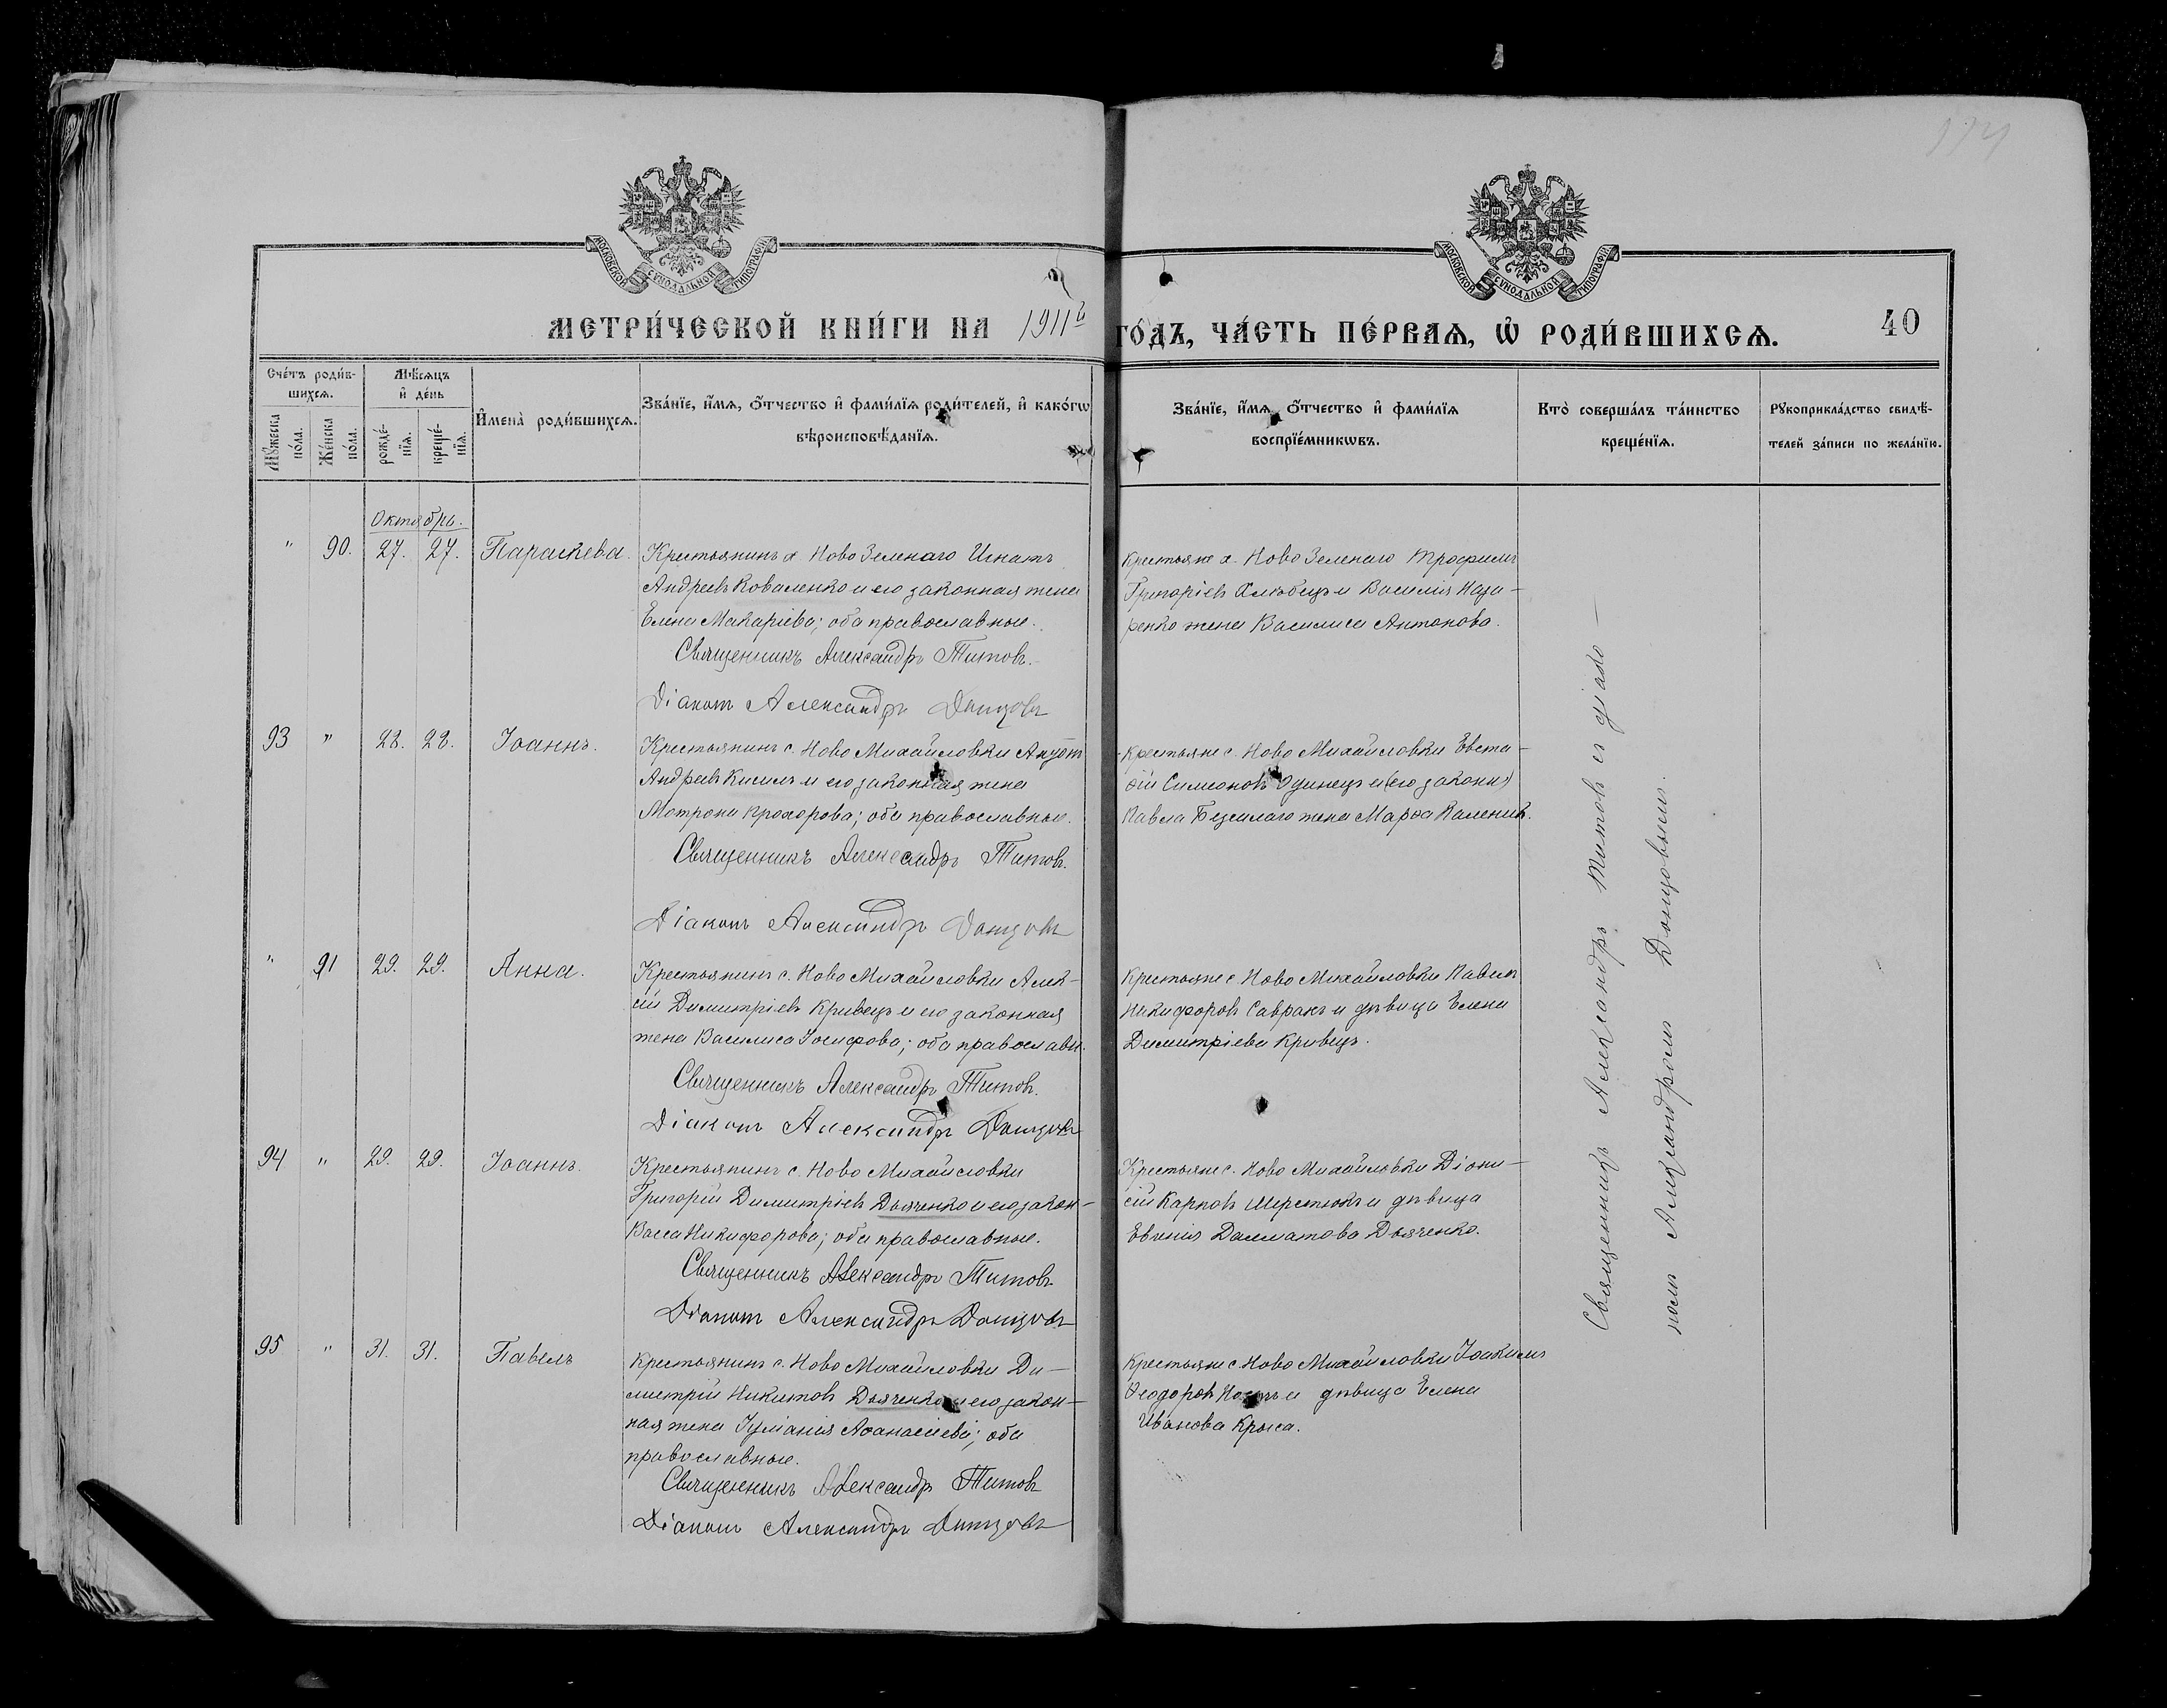 МОСКОВСКОЙ СѴНОДАЛЬНОЙ ТИПОГРАФІИ
МОСКОВСКОЙ СѴНОДАЛЬНОЙ ТИПОГРАФІИ
МЕТРИ́ЧЕСКОЙ КНИ́ГИ НА 1911й
ГО́ДЪ, ЧА́СТЬ ПЕ́РВАѦ, Ѡ РОДИ́ВШИХСѦ.
40
Сче́тъ роди́в-
шихсѧ.
Мѣ́сѧцъ
и҆ де́нь
И҆мена̀ роди́вшихсѧ.
Зва́нїе, и҆́мѧ, ѻ҆́тчество и҆ фами́лїѧ роди́телей, и҆ како́гѡ
вѣроисповѣ́данїѧ.
Мꙋ́жеска
по́ла.
Же́нска
по́ла.
рожде́-
нїѧ.
креще́-
нїѧ.
Зва́нїе, и҆́мѧ, ѻ҆́тчество и҆ фами́лїѧ
воспрїе́мникѡвъ.
Кто̀ соверша́лъ та́инство
креще́нїѧ.
Рꙋкоприкла́дство свидѣ́-
телей за́писи по жела́нїю.
Октябрь.
" 90. 27. 27. Параскева.
Крестьянинъ х. Ново Зеленаго Игнатъ
Андреевъ Коваленко и его законная жена
Елена Макаріева; оба православные.
Священникъ Александръ Титовъ.
Діаконъ Александръ Донцовъ
Крестьяне х. Ново Зеленаго Трофимъ
Григоріевъ Хлѣбецъ и Василія Наза-
ренко жена Василиса Антонова.
93 " 28. 28. Іоаннъ.
Крестьянинъ с. Ново Михайловки
Андреевъ Кисиль и его законная жена
Матрона Прохорова; оба православные.
Священникъ Александръ Титовъ.
Діаконъ Александръ Донцовъ
Крестьяне с. Ново Михайловки Евста-
ѳій Симеоновъ Одинецъ и (его законн)
Павла жена Марѳа
" 91 29. 29. Анна.
Крестьянинъ с. Ново Михайловки Алек-
сій Димитріевъ Кривецъ и его законная
жена Василиса Іосифова; оба православн.
Священникъ Александръ Титовъ.
Діаконъ Александръ Донцовъ
Крестьяне с. Ново Михайловки Павелъ
Никифоровъ Савранъ и дѣвица Елена
Димитріева Кривецъ.
94 " 29. 29. Іоаннъ.
Крестьянинъ с. Ново Михайловки
Григорій Димитріевъ Дьяченко и его закон-
Васса Никифорова; оба православные.
Священникъ Александръ Титовъ
Діаконъ Александръ Донцовъ
Крестьяне с. Ново Михайловки Діони-
сій Карповъ Шерстюкъ и дѣвица
Евгенія Далматова Дьяченко.
95 " 31. 31. Павелъ
Крестьянинъ с. Ново Михайловки Ди-
митрій Никитовъ Дьяченко и его закон-
ная жена Іуліанія Аѳанасіева; оба
православные.
Священникъ Александръ Титовъ
Діаконъ Александръ Донцовъ
Крестьяне с. Ново Михайловки Іоакимъ
Ѳеодоровъ и дѣвица Елена
Иванова Крыса.
Священникъ Александръ Титовъ съ діако-
номъ Александромъ Донцовымъ.